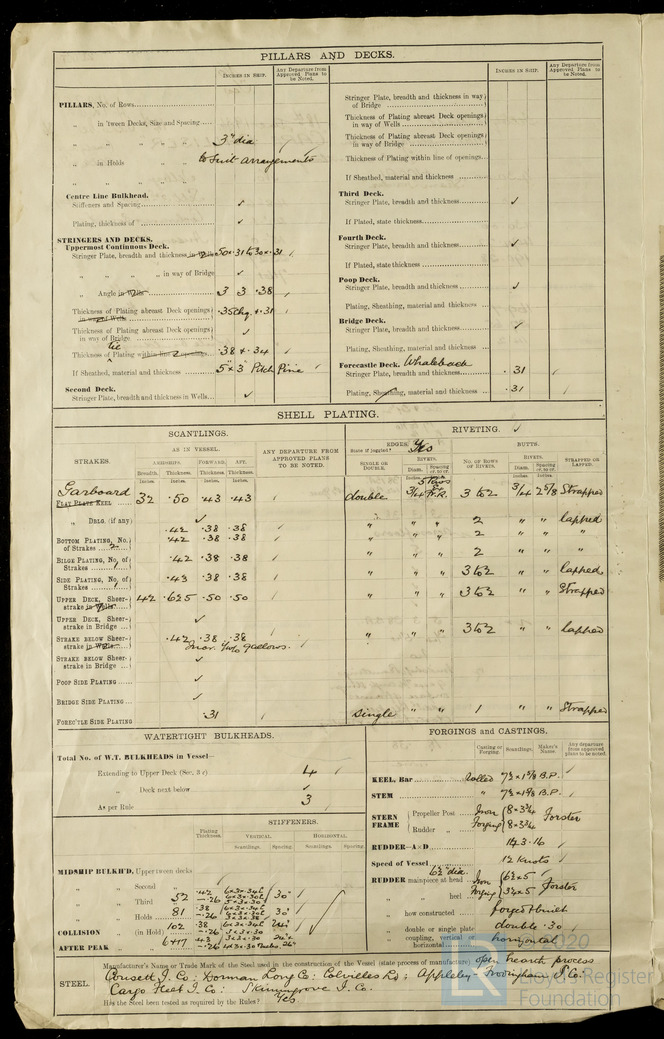 PILLARS AND DECKS.
INCHES IN SHIP.
Any Departure from Approved Plans to be Noted.
PILLARS, No. of Rows
„ in 'tween Decks, Size and Spacing
„ „ „ „ „ 3" dia
„ in Holds „ „ to suit arrangements
„ „ „ „
Centre Line Bulkhead.
Stiffeners and Spacing ✓
Plating, thickness of ✓
STRINGERS AND DECKS.
Uppermost Continuous Deck.
Stringer Plate, breadth and thickness in Wells 50 × .31 to 30 × .31
„ „ „ „ in way of Bridge ✓
„ Angle in Wells 3 3 .38
Thickness of Plating abreast Deck openings in way of Wells .35 chq. & .31
Thickness of Plating abreast Deck openings in way of Bridge ✓
Thickness of tie Plating within line of openings .38 & .34
If Sheathed, material and thickness 5" × 3" Pitch Pine
Second Deck.
Stringer Plate, breadth and thickness in Wells ✓
INCHES IN SHIP.
Any Departure from Approved Plans to be Noted.
Stringer Plate, breadth and thickness in way of Bridge
Thickness of Plating abreast Deck openings in way of Wells
Thickness of Plating abreast Deck openings in way of Bridge
Thickness of Plating within line of openings
If Sheathed, material and thickness
Third Deck.
Stringer Plate, breadth and thickness ✓
If Plated, state thickness
Fourth Deck.
Stringer Plate, breadth and thickness ✓
If Plated, state thickness
Poop Deck.
Stringer Plate, breadth and thickness ✓
Plating, Sheathing, material and thickness
Bridge Deck.
Stringer Plate, breadth and thickness ✓
Plating, Sheathing, material and thickness
Forecastle Deck. Whaleback
Stringer Plate, breadth and thickness .31
Plating, Sheathing, material and thickness .31
SHELL PLATING.
SCANTLINGS.
RIVETING. ✓
STRAKES.
AS IN VESSEL.
AMIDSHIPS. FORWARD. AFT.
Breadth. Thickness. Thickness. Thickness.
Inches. Inches. Inches. Inches.
ANY DEPARTURE FROM APPROVED PLANS TO BE NOTED.
EDGES. Yes
State if joggled?
SINGLE OR DOUBLE.
RIVETS.
Diam. Spacing cr. to cr.
BUTTS.
NO. OF ROWS OF RIVETS.
RIVETS.
Diam. Spacing cr. to cr.
STRAPPED OR LAPPED.
Garboard
FLAT PLATE KEEL 32 .50 .43 .43 double 3/4 3 to 2 3/4 2 5/8 Strapped
„ DBLG. (if any) ✓
BOTTOM PLATING, No. of Strakes 2 .42 .38 .38 „ „ „ 2 „ „ lapped
.42 .38 .38 „ „ „ 2 „ „ „
BILGE PLATING, No. of Strakes 1 .42 .38 .38 „ „ „ 2 „ „
SIDE PLATING, No. of Strakes 1 .43 .38 .38 „ „ „ 3 to 2 „ „ lapped
UPPER DECK, Sheer-strake in Wells 42 .625 .50 .50 „ „ „ 3 to 2 „ „ Strapped
UPPER DECK, Sheer-strake in Bridge ✓
STRAKE BELOW Sheer-strake in Wells .42 .38 .38 „ „ „ 3 to 2 „ „ lapped
Incr. i/w/o gallows.
STRAKE BELOW Sheer-strake in Bridge ✓
POOP SIDE PLATING ✓
BRIDGE SIDE PLATING ✓
FOREC'TLE SIDE PLATING .31 Single „ „ 1 „ „ Strapped
WATERTIGHT BULKHEADS.
Total No. of W.T. BULKHEADS in Vessel—
Extending to Upper Deck (Sec. 3 c) 4
„ Deck next below ✓
As per Rule 3
STIFFENERS.
Plating Thickness.
VERTICAL. HORIZONTAL.
Scantlings. Spacing. Scantlings. Spacing.
MIDSHIP BULKH'D, Upper tween decks
„ „ Second „
„ „ Third „ 52 30"
„ „ Holds 81 30"
COLLISION „ (in Hold) 102
AFTER PEAK „ „
FORGINGS and CASTINGS.
Casting or Forging. Scantlings. Maker's Name. Any departure from approved plans to be noted.
KEEL, Bar rolled 7½ × 1⅝ B.P.
STEM „ 7½ × 1⅝ B.P.
STERN FRAME
Propeller Post Iron 8 × 3¾ Forster
Rudder „ Forging 8 × 3¾
RUDDER—A×D 143.16
Speed of Vessel 12 Knots
6½" dia.
RUDDER mainpiece at head Iron 6½ × 5 Forster
„ „ heel Forging 3½ × 5
„ how constructed forged & built
„ double or single plate double .30
„ coupling, vertical or horizontal horizontal
STEEL.
Manufacturer's Name or Trade Mark of the Steel used in the construction of the Vessel (state process of manufacture) open hearth process
Consett I. Co: Dorman Long Co: Colvilles Ld: Appleby-Frodingham S. Co:
Cargo Fleet I. Co: Skinningrove I. Co.
Has the Steel been tested as required by the Rules? Yes
© 2020
LR
Lloyd's Register
Foundation